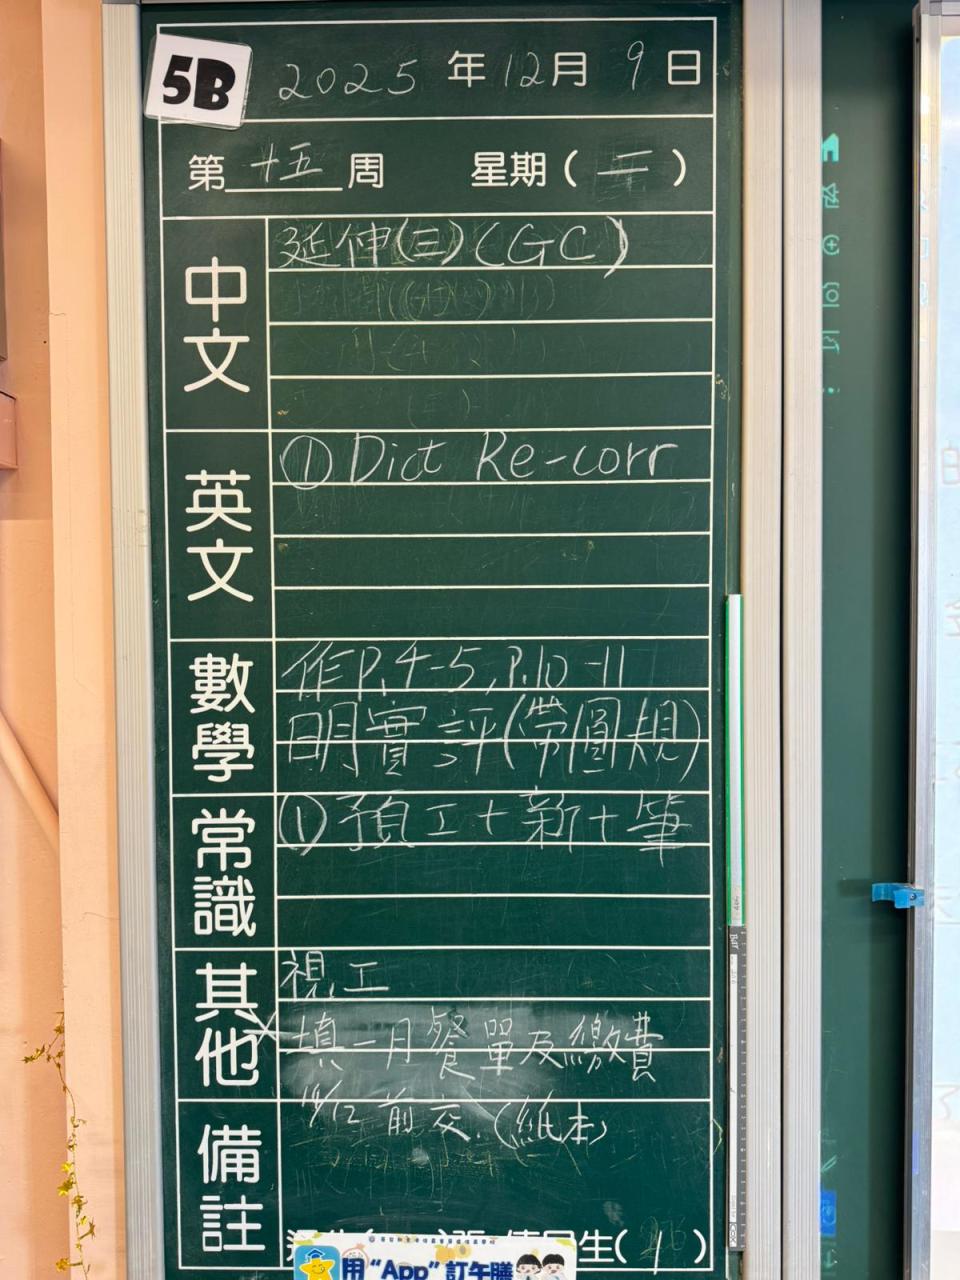 5B
2025 年 12 月 9 日
第 十五 周 星期 ( 二 )
中文
延伸(三)(GC)
英文
① Dict Re-corr
數學
作P.4-5, P.10-11
明實評(帶圓規)
常識
① 預工+新+筆
其他
視工
填一月餐單及繳費
前交. (紙本)
備註
生( )
用“App”訂午膳